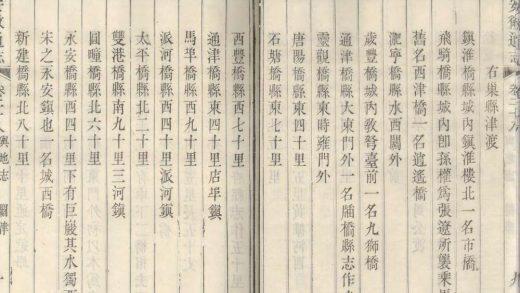 右巢縣津渡
鎮淮橋縣城內鎮淮樓北一名市橋
飛騎橋縣城內卽孫權爲張遼所襲乘馬
舊名西津橋一名逍遙橋
寧橋縣水西關外
歲豐橋城內教弩臺前一名九獅橋
通津橋縣大東門外一名廟橋縣志作
觀橋縣東時雍門外
唐陽橋縣東四十里
石塘橋縣東七十里
西豐橋縣西七十里
通津橋縣東四十里店埠鎮
馬埠橋縣東十里
派河橋縣西四十里派河鎮
雙港橋縣南九十里三河鎮
太平橋縣北二十里
圓疃橋縣北六十里
永安橋縣西四十里下有巨巖其水獨西
宋之永安鎮也一名城西橋
新建橋縣北八十里
通志 輿地志 關津 十